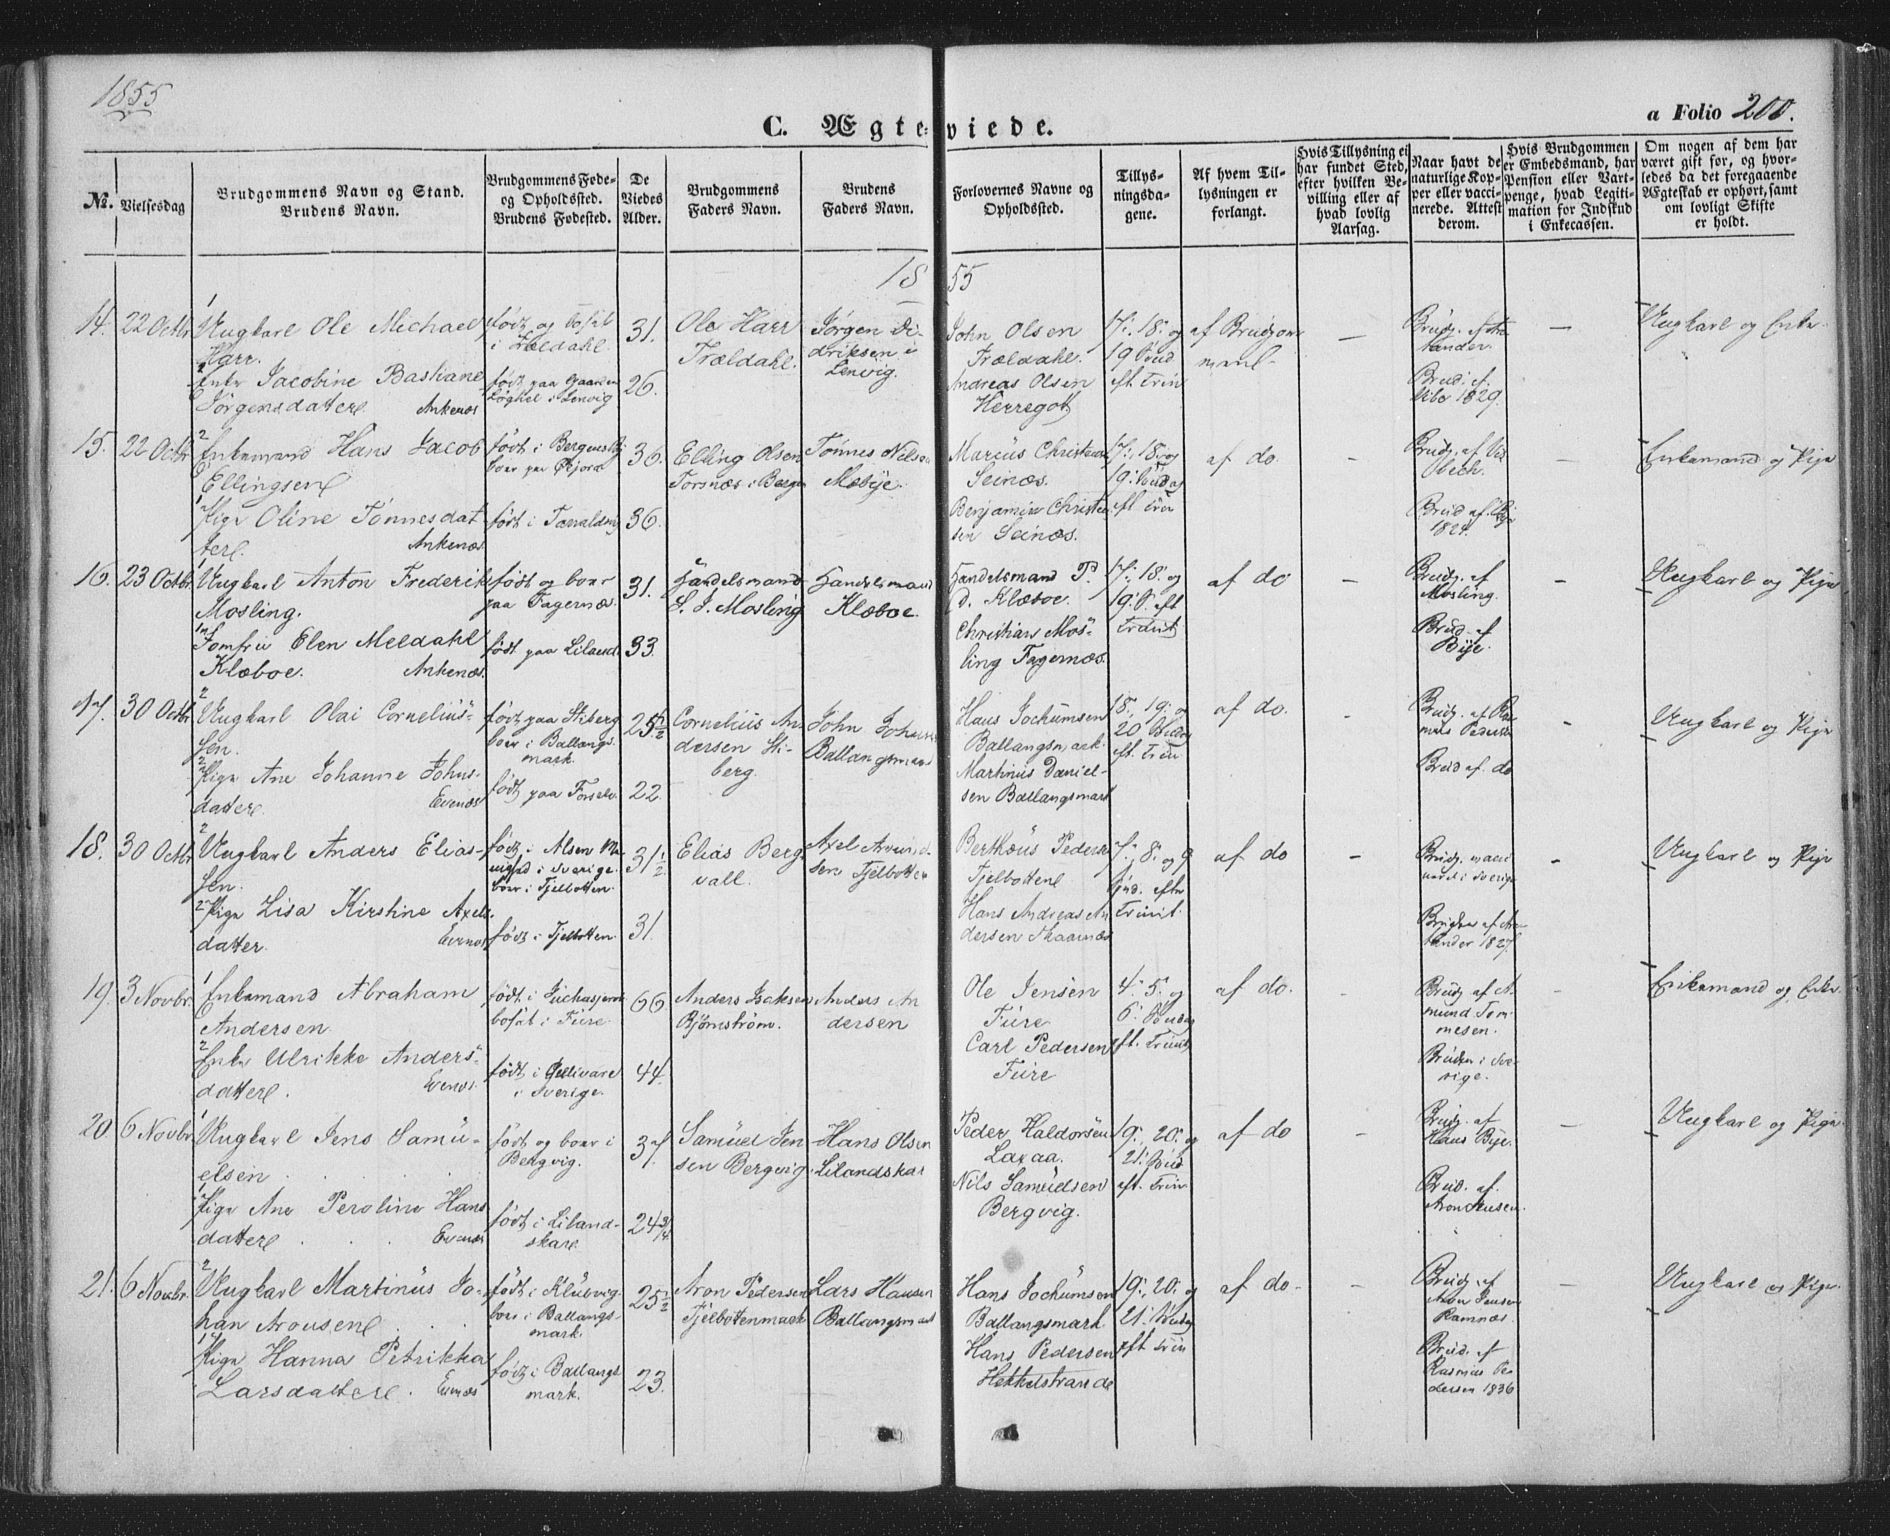 1855
C. Ægteviede.
a Folio 200.
№.
Vielsesdag
Brudgommens Navn og Stand.
Brudens Navn.
Brudgommens Føde-
og Opholdssted.
Brudens Fødested.
De
Viedes
Alder.
Brudgommens
Faders Navn.
Brudens
Faders Navn.
Forlovernes Navne og
Opholdssted.
Tillys-
ningsda-
gene.
Af hvem Til-
lysningen er
forlangt.
Hvis Tillysning ei
har fundet Sted,
efter hvilken Be-
villing eller af
hvad lovlig
Aarsag.
Naar havt de
naturlige Kop-
per eller vacci-
nerede. Attest
derom.
Hvis Brudgommen
er Embedsmand, har
Pension eller Vart-
penge, hvad Legiti-
mation for Indskud
i Enkecassen.
Om nogen af dem har
været gift før, og hvor-
ledes da det foregaaende
Ægteskab er ophørt, samt
om lovligt Skifte
er holdt.
18 55
14. 22 Octbr
Ungkarl Ole Michael
Harr.
Enke Jacobine Bastiane
Jørgensdatter. Ankenæs
født og bosat
i
født paa Gaarden
i Lenvig
31.
26.
Ole Harr
Trældahl.
Jørgen Di-
driksen i
Lenvig.
John Olsen
Trældahl.
Andreas Olsen
Herregott
17. 18. og
19 Sønd
eft. Trin
af Brudgom-
men
—
Brudg. af
Brud. af
1829.
—
Ungkarl og Enke.
15. 22 Octbr
Enkemand Hans Jacob
Ellingsen
Pige Oline Tønnesdat
ter. Ankenæs.
født i Bergens
boer paa
født i
36.
36.
Elling Olsen
Torsnæs i Bergen
Tønnes Nilsen
Mæbye.
Marcus Christensen
Seinæs.
Benjamin Christen
sen Seinæs.
17. 18. og
19. Søndag
eft Trin
af do.
—
Brudg. af
Brud af
—
Enkemand og Pige
16. 23 Octbr.
Ungkarl Anton Frederik
Mosling.
Jomfru Elen Meldahl
Klæboe. Ankenæs.
født og boer
paa Fagernæs.
født paa Liland.
31.
33.
Handelsmand
L. J. Mosling
Handelsmand
Klæboe.
Handelsmand P.
D. Klæboe.
Christians Mos-
ling Fagernæs.
17. 18. og
19. S. eft
Trinit
af do
—
Brudg. af
Mosling.
Brud. af
Bye.
—
Ungkarl og Pige
17. 30 Octbr
Ungkarl Olai Cornelius-
sen.
Pige Ane Johanne Johns-
datter. Evenæs
født paa Stiberg
boer i Ballangs
mark.
født paa
25 1/2
22.
Cornelius An
dersen Sti-
berg.
John Johnsen
Ballangsmark
Hans Jochumsen
Ballangsmark.
Martinus Daniel-
sen Ballangsmark
18. 19. og
20 Søndag
eft Trin
af do.
-
Brudg. af
Pedersen
Brud af do
-
Ungkarl og Pige
18. 30 Octbr
Ungkarl Anders Elias-
sen.
Pige Lisa Kirstine Axels
datter. Evenæs
født i Alsen
i Sverige
boer i Tjelbotten.
født i Tjelbotten.
31 1/2
31.
Elias Berg-
vall.
Axel
sen Tjelbotten
Berthæus Pedersen
Tjelbotten
Hans Andreas An
dersen Skaarnæs
7. 8. og 9
Sønd. efter
Trinit.
af do
-
Brudg.
i Sverige
Bruden af
1827.
-
Ungkarl og Pige
19. 3 Novbr.
Enkemand Abraham
Andersen
Enke Ulrikke Anders-
datter. Evenæs.
født i
bosat i Fure.
født i Gellivare
i Sverige.
66
44.
Anders Isaksen
Bjørnstrøm.
Anders An
dersen
Ole Jensen
Fure
Carl Pedersen
Fure
4. 5. og
6. Søndag
eft. Trinit
af do.
-
Brudg af A-
mund Tom
mesen.
Bruden i Sve-
rige.
-
Enkemand og Enke
20. 6 Novbr.
Ungkarl Jens Samu-
elsen
Pige Ane Peroline Hans
datter. Evenæs
født og boer i
Bergvig.
født i Liland-
skar.
37.
24 3/4
Samuel Jen
sen Bergvig.
Hans Olsen
Lilandskar
Peder Haldorsen
Laxaa.
Nils Samuelsen
Bergvig.
19. 20. og
21. Sønd
eft. Trin
af do
-
Brudg. af
Klaus Bye.
Brud. af
Aron Jensen.
—
Ungkarl og Pige.
21. 6 Novbr.
Ungkarl Martinus Jo-
han Aronsen
Pige Hanna Petrikka
Larsdatter. Evenæs
født i
boer i Ballangs-
mark.
født i Ballangs
mark.
25 1/2
23.
Aron Pedersen
Tjelbottenmark
Lars Hansen
Ballangsmark
Hans Jochumsen
Ballangsmark
Hans Pedersen
Hekkelstrand
19. 20. og
21. Søndag
eft Trin
af do-
-
Brudg. af
Aron Jensen
Ramnæs.
Brud. af
Rasmus Pe
dersen 1836
—
Ungkarl og Pige.